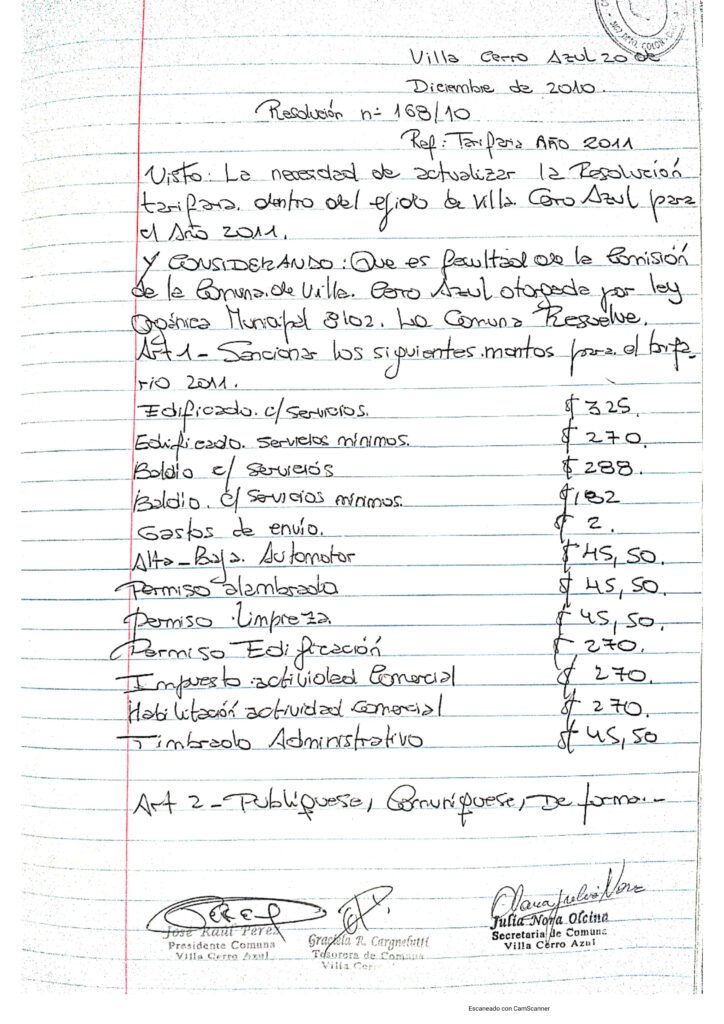 DPTO. COLON
Villa Cerro Azul 20 de
Diciembre de 2010.
Resolución n= 168/10
Ref: Tarifaria AÑO 2011
Visto: La necesidad de actualizar la Resolución
tarifaria. dentro del ejido de Villa Cerro Azul para
el Año 2011.
Y CONSIDERANDO: Que es facultad de la Comisión
de la Comuna de Villa. Cerro Azul otorgada por ley
Orgánica Municipal 8102. La Comuna Resuelve.
Art 1 - Sancionar los siguientes montos para el tarifa-
rio 2011.
Edificado c/servicios. $ 325.
Edificado. servicios mínimos. $ 270.
Baldio c/ servicios $ 288.
Baldio. c/ servicios mínimos. $ 182
Gastos de envío. $ 2.
Alta-Baja. Automotor $ 45,50.
Permiso alambrado $ 45,50.
Permiso limpieza $ 45,50.
Permiso Edificación $ 270.
Impuesto actividad Comercial $ 270.
Habilitación actividad comercial $ 270.
Timbrado Administrativo $ 45,50
Art 2 - Publíquese, Comuníquese, De forma.-
José Raúl Perez
Presidente Comuna
Villa Cerro Azul
Graciela R. Cargnelutti
Tesorera de Comuna
Villa Cerro
Julia Nora Olcina
Secretaria de Comuna
Villa Cerro Azul
Escaneado con CamScanner